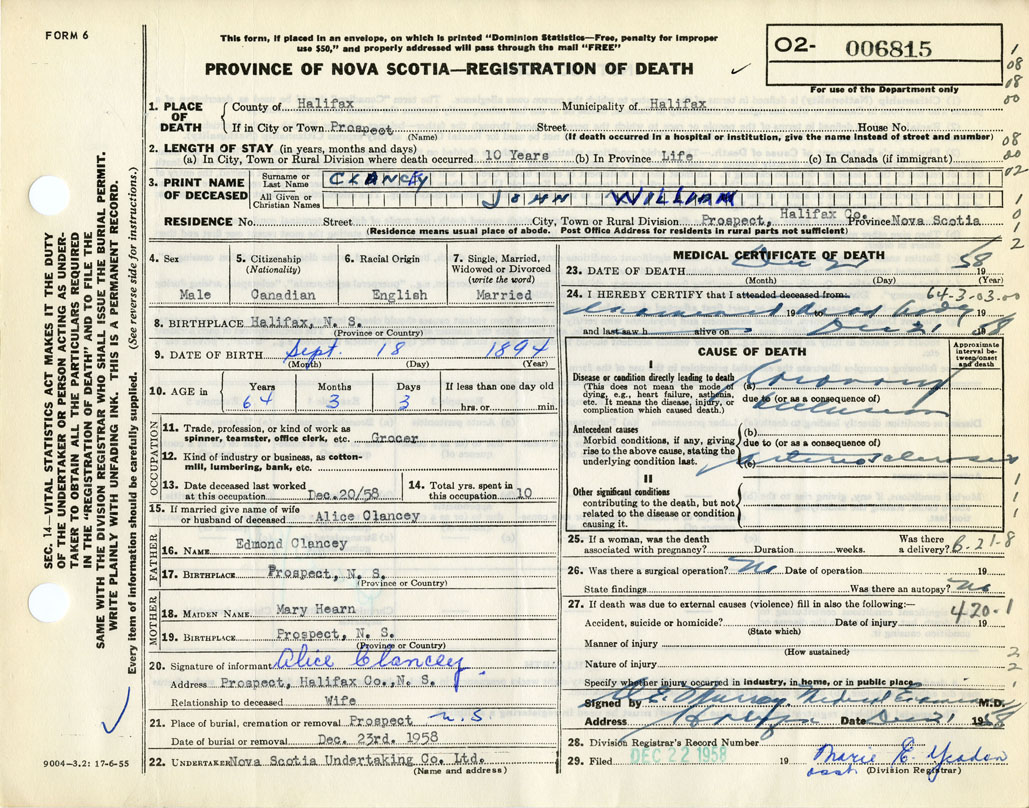 FORM 6
This form, if placed in an envelope, on which is printed "Dominion Statistics—Free, penalty for improper
use $50," and properly addressed will pass through the mail "FREE"
PROVINCE OF NOVA SCOTIA—REGISTRATION OF DEATH ✓
O2- 006815
For use of the Department only
1
08
08
00
08
00
02
1
0
1
2
SEC. 14—VITAL STATISTICS ACT MAKES IT THE DUTY
OF THE UNDERTAKER OR PERSON ACTING AS UNDER-
TAKER TO OBTAIN ALL THE PARTICULARS REQUIRED
IN THE "REGISTRATION OF DEATH" AND TO FILE THE
SAME WITH THE DIVISION REGISTRAR WHO SHALL ISSUE THE BURIAL PERMIT.
WRITE PLAINLY WITH UNFADING INK. THIS IS A PERMANENT RECORD.
Every item of information should be carefully supplied. (See reverse side for instructions.)
1. PLACE OF DEATH County of Halifax Municipality of Halifax
If in City or Town Prospect Street House No.
(Name) (If death occurred in a hospital or institution, give the name instead of street and number)
2. LENGTH OF STAY (in years, months and days)
(a) In City, Town or Rural Division where death occurred 10 Years (b) In Province Life (c) In Canada (if immigrant)
3. PRINT NAME OF DECEASED Surname or Last Name CLANCEY
All Given or Christian Names JOHN WILLIAM
RESIDENCE No. Street City, Town or Rural Division Prospect, Halifax Co. Province Nova Scotia
(Residence means usual place of abode. Post Office Address for residents in rural parts not sufficient)
4. Sex 5. Citizenship (Nationality) 6. Racial Origin 7. Single, Married, Widowed or Divorced (write the word)
Male Canadian English Married
8. BIRTHPLACE Halifax, N. S.
(Province or Country)
9. DATE OF BIRTH Sept. 18 1894
(Month) (Day) (Year)
10. AGE in Years Months Days If less than one day old
64 3 3 hrs. or min.
OCCUPATION
11. Trade, profession, or kind of work as
spinner, teamster, office clerk, etc. Grocer
12. Kind of industry or business, as cotton-
mill, lumbering, bank, etc.
13. Date deceased last worked at this occupation Dec.20/58 14. Total yrs. spent in this occupation 10
15. If married give name of wife
or husband of deceased Alice Clancey
FATHER
16. NAME Edmond Clancey
17. BIRTHPLACE Prospect, N. S.
(Province or Country)
MOTHER
18. MAIDEN NAME Mary Hearn
19. BIRTHPLACE Prospect, N. S.
(Province or Country)
20. Signature of informant Alice Clancey
Address Prospect, Halifax Co., N. S.
Relationship to deceased Wife
21. Place of burial, cremation or removal Prospect N.S
Date of burial or removal Dec. 23rd. 1958
22. UNDERTAKER Nova Scotia Undertaking Co. Ltd.
(Name and address)
9004—3.2: 17-6-55
MEDICAL CERTIFICATE OF DEATH
23. DATE OF DEATH Dec 21 1958
(Month) (Day) (Year)
24. I HEREBY CERTIFY that I attended deceased from: 64-3-03.00
examined 19 dead body
and last saw h alive on Dec 21 1958
CAUSE OF DEATH
Approximate interval be-tween onset and death
I
Disease or condition directly leading to death
(This does not mean the mode of
dying, e.g., heart failure, asthenia,
etc. It means the disease, injury, or
complication which caused death.)
(a) Coronary
due to (or as a consequence of)
occlusion
Antecedent causes
Morbid conditions, if any, giving
rise to the above cause, stating the
underlying condition last.
(b)
due to (or as a consequence of)
(c) Arteriosclerosis
II
Other significant conditions
contributing to the death, but not
related to the disease or condition
causing it.
25. If a woman, was the death
associated with pregnancy? Duration weeks. Was there a delivery? B-21-8
26. Was there a surgical operation? No Date of operation 19
State findings Was there an autopsy? No
27. If death was due to external causes (violence) fill in also the following:— 420-1
Accident, suicide or homicide? Date of injury 19
(State which)
Manner of injury
(How sustained)
Nature of injury
Specify whether injury occurred in industry, in home, or in public place
Signed by E. Murray Medical Examiner M.D.
Address Halifax Date Dec 21 1958
28. Division Registrar's Record Number
29. Filed DEC 22 1958 19 Marie E. Yeadon
(Division Registrar)